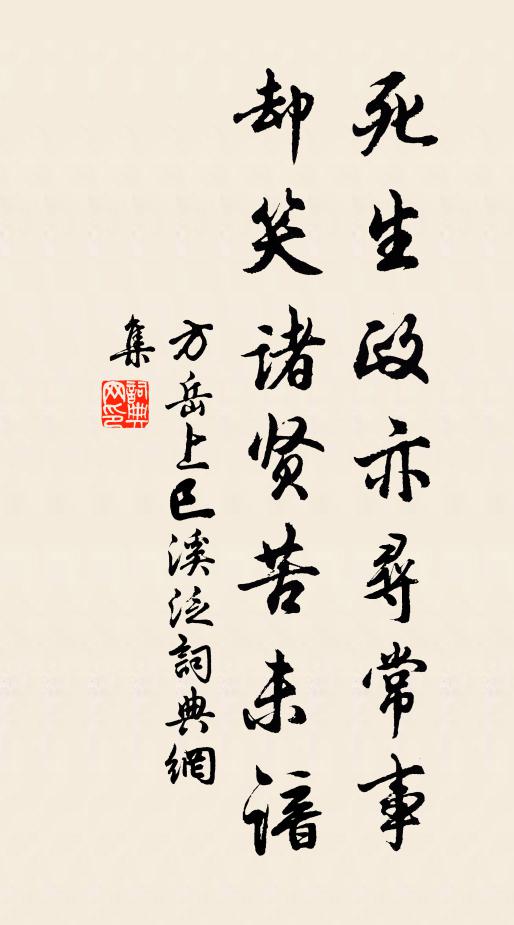 死生政亦寻常事
却笑诸贤苦未谙
方岳上巳溪泛詞典網
集
詞典
网印